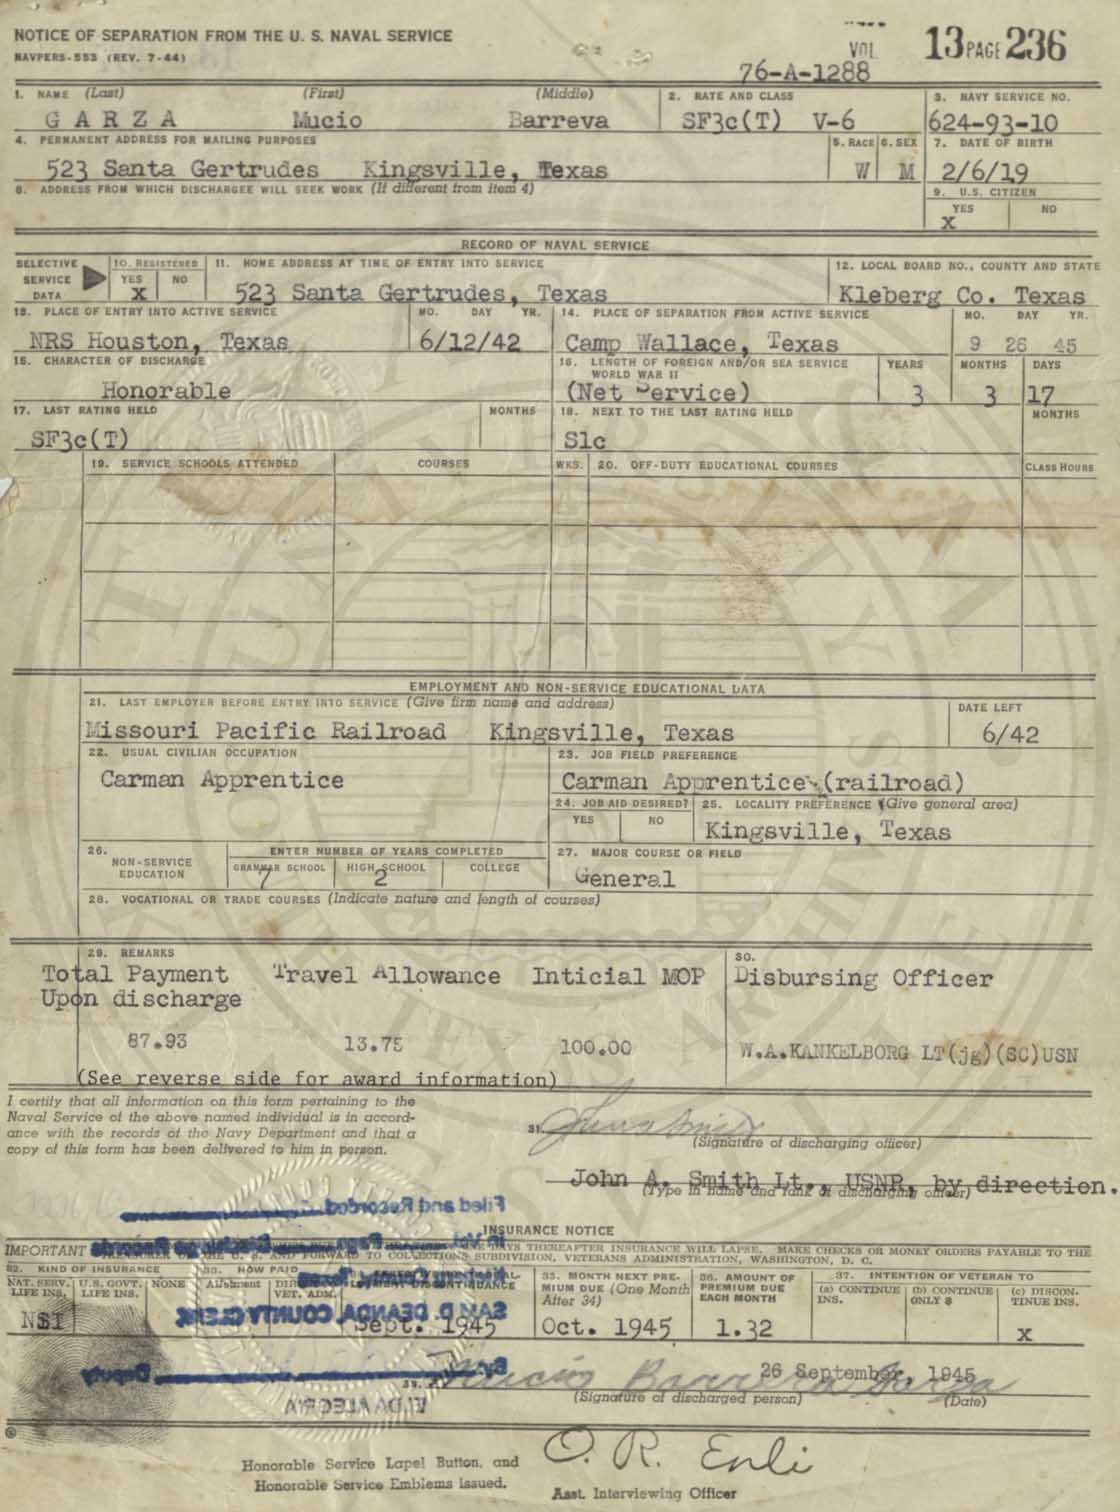 VOL 13 PAGE 236
NOTICE OF SEPARATION FROM THE U. S. NAVAL SERVICE
NAVPERS-553 (REV. 7-44)
76-A-1288
1. NAME (Last) (First) (Middle) 2. RATE AND CLASS 3. NAVY SERVICE NO.
G A R Z A Mucio Barreva SF3c(T) V-6 624-93-10
4. PERMANENT ADDRESS FOR MAILING PURPOSES 5. RACE 6. SEX 7. DATE OF BIRTH
523 Santa Gertrudes Kingsville, Texas W M 2/6/19
8. ADDRESS FROM WHICH DISCHARGEE WILL SEEK WORK (If different from item 4) 9. U.S. CITIZEN
YES NO
X
RECORD OF NAVAL SERVICE
SELECTIVE SERVICE DATA 10. REGISTERED 11. HOME ADDRESS AT TIME OF ENTRY INTO SERVICE 12. LOCAL BOARD NO., COUNTY AND STATE
YES NO
X 523 Santa Gertrudes, Texas Kleberg Co. Texas
13. PLACE OF ENTRY INTO ACTIVE SERVICE MO. DAY YR. 14. PLACE OF SEPARATION FROM ACTIVE SERVICE MO. DAY YR.
NRS Houston, Texas 6/12/42 Camp Wallace, Texas 9 26 45
15. CHARACTER OF DISCHARGE 16. LENGTH OF FOREIGN AND/OR SEA SERVICE WORLD WAR II YEARS MONTHS DAYS
Honorable (Net Service) 3 3 17
17. LAST RATING HELD MONTHS 18. NEXT TO THE LAST RATING HELD MONTHS
SF3c(T) S1c
19. SERVICE SCHOOLS ATTENDED COURSES WKS. 20. OFF-DUTY EDUCATIONAL COURSES CLASS HOURS
EMPLOYMENT AND NON-SERVICE EDUCATIONAL DATA
21. LAST EMPLOYER BEFORE ENTRY INTO SERVICE (Give firm name and address) DATE LEFT
Missouri Pacific Railroad Kingsville, Texas 6/42
22. USUAL CIVILIAN OCCUPATION 23. JOB FIELD PREFERENCE
Carman Apprentice Carman Apprentice (railroad)
24. JOB AID DESIRED? 25. LOCALITY PREFERENCE (Give general area)
YES NO Kingsville, Texas
26. NON-SERVICE EDUCATION ENTER NUMBER OF YEARS COMPLETED 27. MAJOR COURSE OR FIELD
GRAMMAR SCHOOL HIGH SCHOOL COLLEGE
7 2 General
28. VOCATIONAL OR TRADE COURSES (Indicate nature and length of courses)
29. REMARKS 30.
Total Payment Travel Allowance Inticial MOP Disbursing Officer
Upon discharge
87.93 13.75 100.00 W.A.KANKELBORG LT(jg)(SC)USN
(See reverse side for award information)
I certify that all information on this form pertaining to the
Naval Service of the above named individual is in accord-
ance with the records of the Navy Department and that a
copy of this form has been delivered to him in person.
31.
(Signature of discharging officer)
John A. Smith Lt., USNR, by direction.
(Type in name and rank of discharging officer)
Filed and Recorded
INSURANCE NOTICE
IMPORTANT DAYS THEREAFTER INSURANCE WILL LAPSE. MAKE CHECKS OR MONEY ORDERS PAYABLE TO THE
TREASURER OF THE U. S. AND FORWARD TO COLLECTIONS SUBDIVISION, VETERANS ADMINISTRATION, WASHINGTON, D. C.
32. KIND OF INSURANCE 33. HOW PAID 35. MONTH NEXT PREMIUM DUE (One Month After 34) 36. AMOUNT OF PREMIUM DUE EACH MONTH 37. INTENTION OF VETERAN TO
NAT. SERV. LIFE INS. U.S. GOVT. LIFE INS. NONE Allotment (a) CONTINUE INS. (b) CONTINUE ONLY $ (c) DISCONTINUE INS.
NSI Sept. 1945 Oct. 1945 1.32 X
SAM D. DEANDA COUNTY CLERK
By Deputy
Mucio Barrera Garza
26 September, 1945
(Signature of discharged person) (Date)
ELDA ALEGRIA
Honorable Service Lapel Button, and
Honorable Service Emblems issued.
Asst. Interviewing Officer